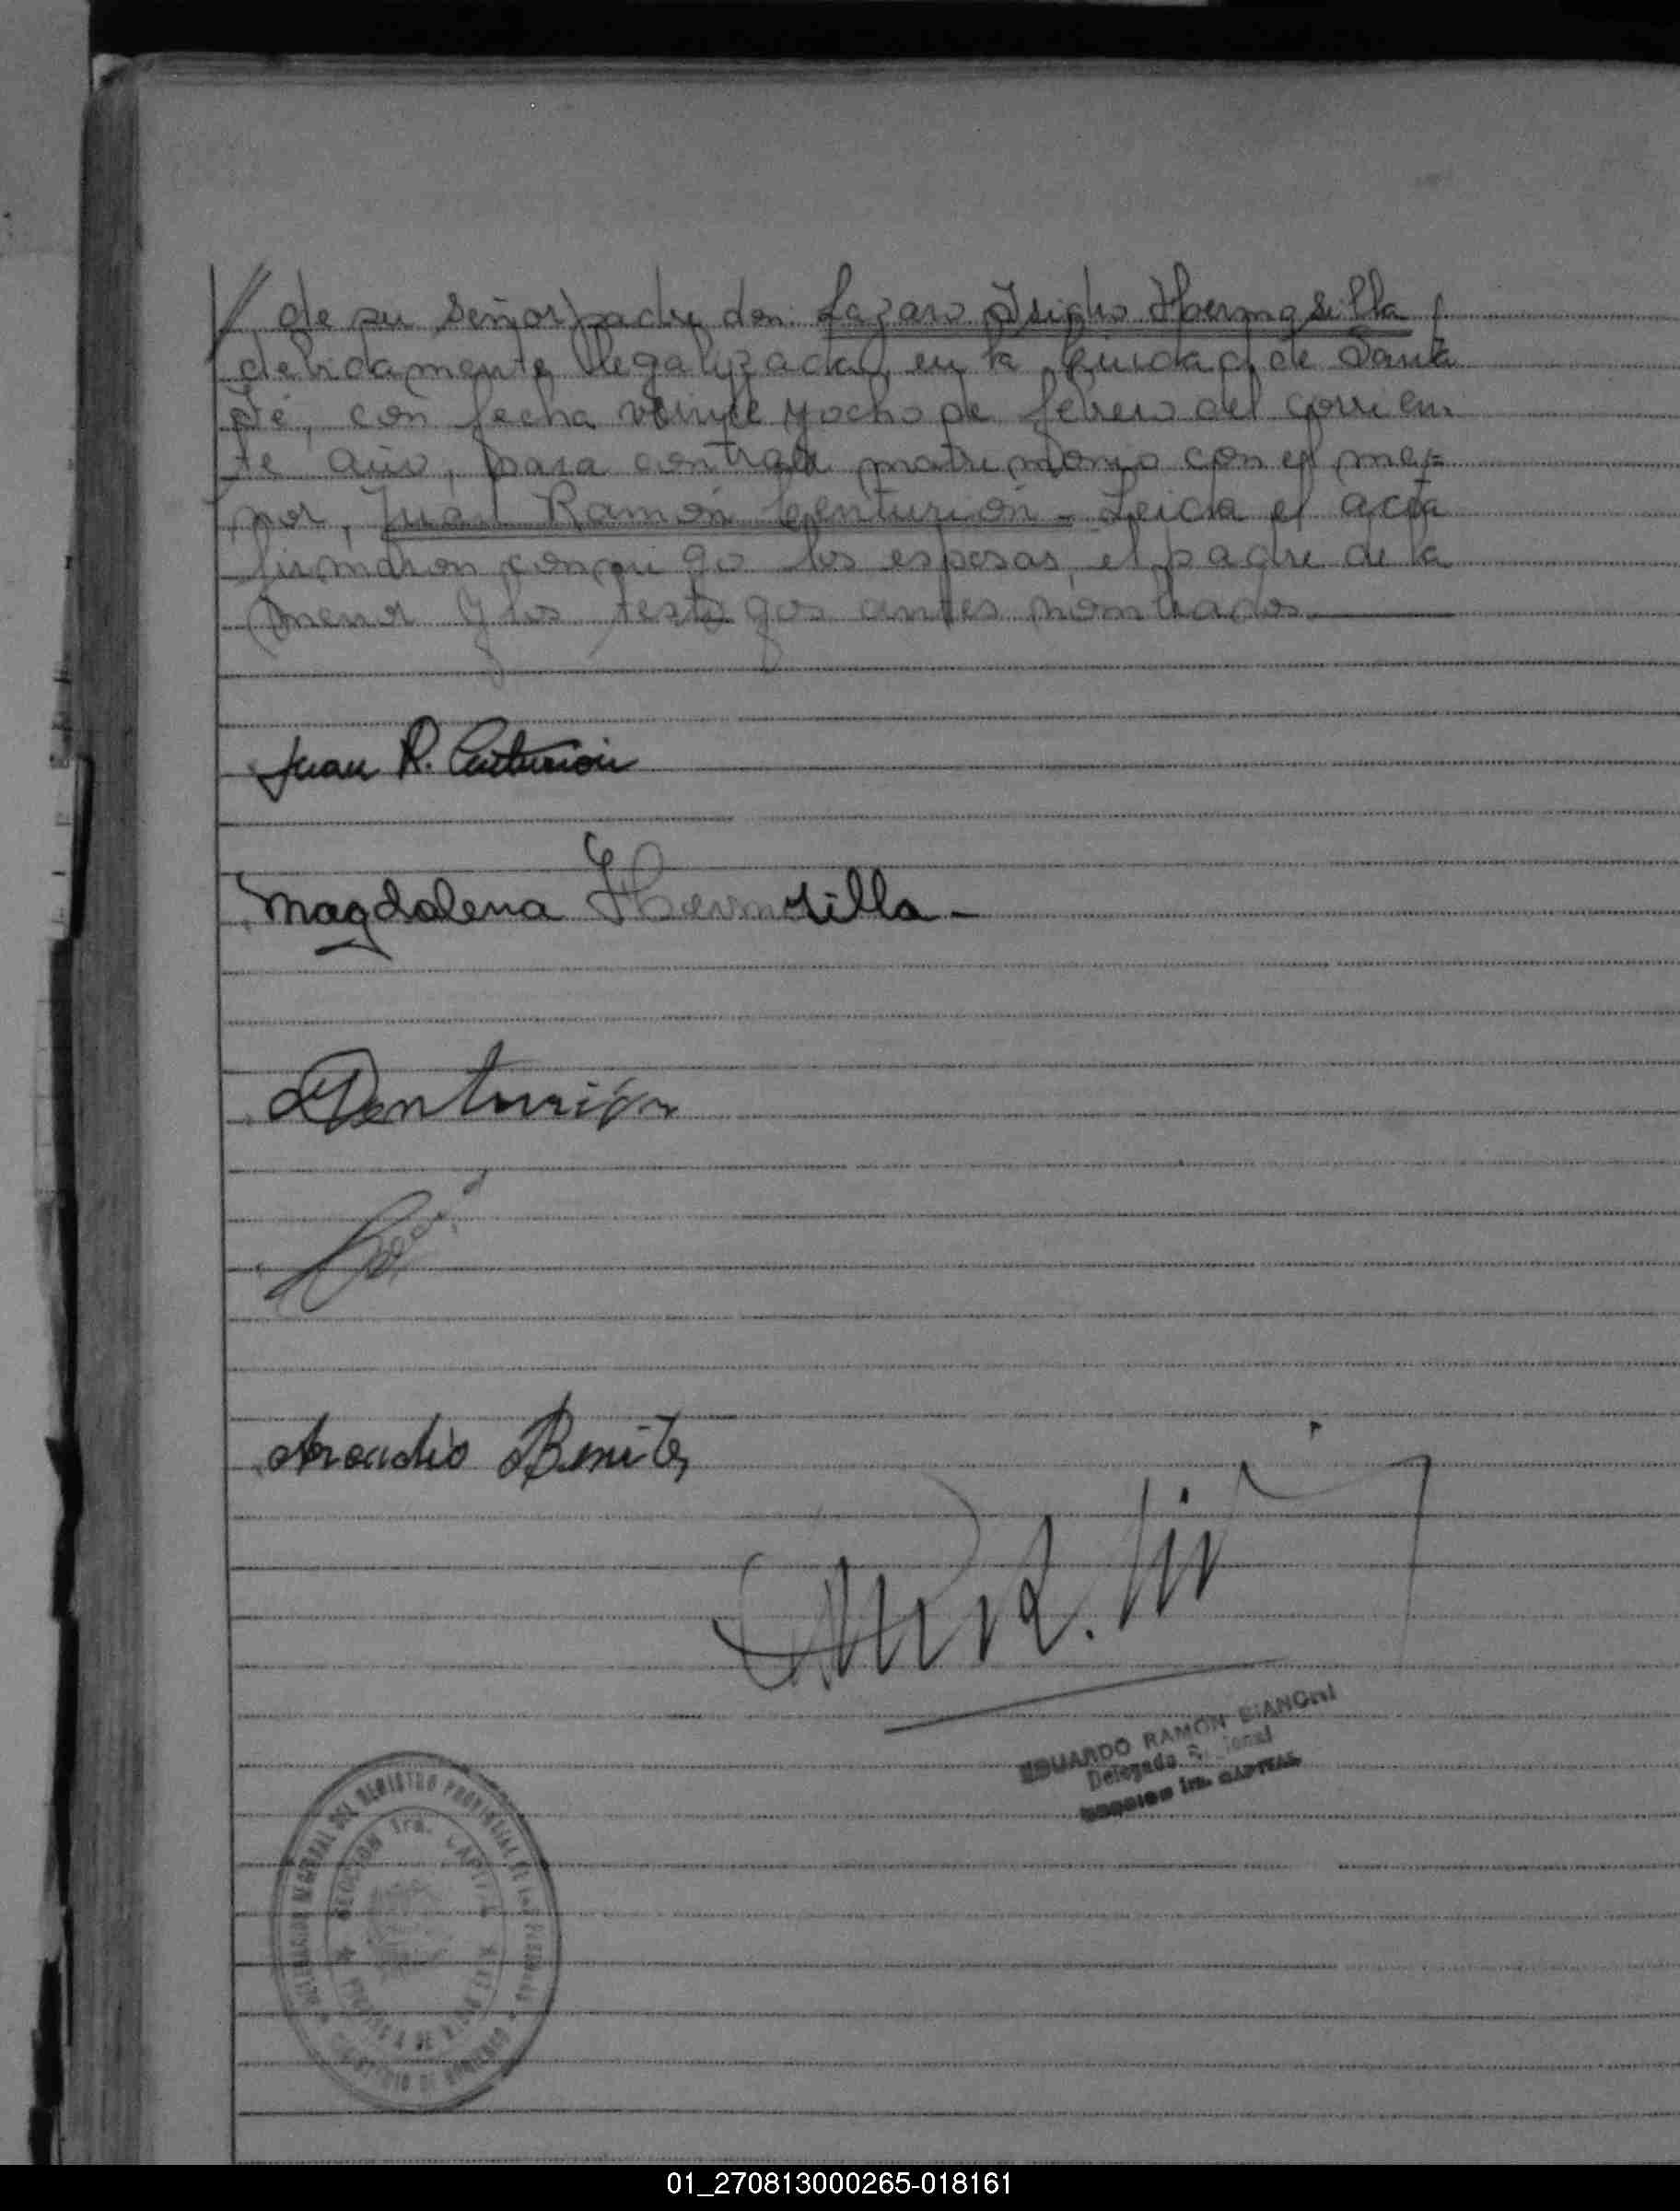 de su señor padre don Lazaro Isidro Hermosilla,
debidamente legalizada, en la Ciudad de Santa
Fé, con fecha veinte y ocho de febrero del corrien
te año, para contraer matrimonio con el me=
nor, Juan Ramón Centurión - Leida el acta
firmaron conmigo los esposos, el padre de la
menor y los testigos antes nombrados.
Juan R. Centurión
Magdalena Hermosilla -
Centurión
Arcadio Benitez
EDUARDO RAMÓN BIANCHI
Delegado
SECCION 1ra. CAPITAL
DEL REGISTRO PROVINCIAL DE LAS PERSONAS
SECCION 1ra. CAPITAL